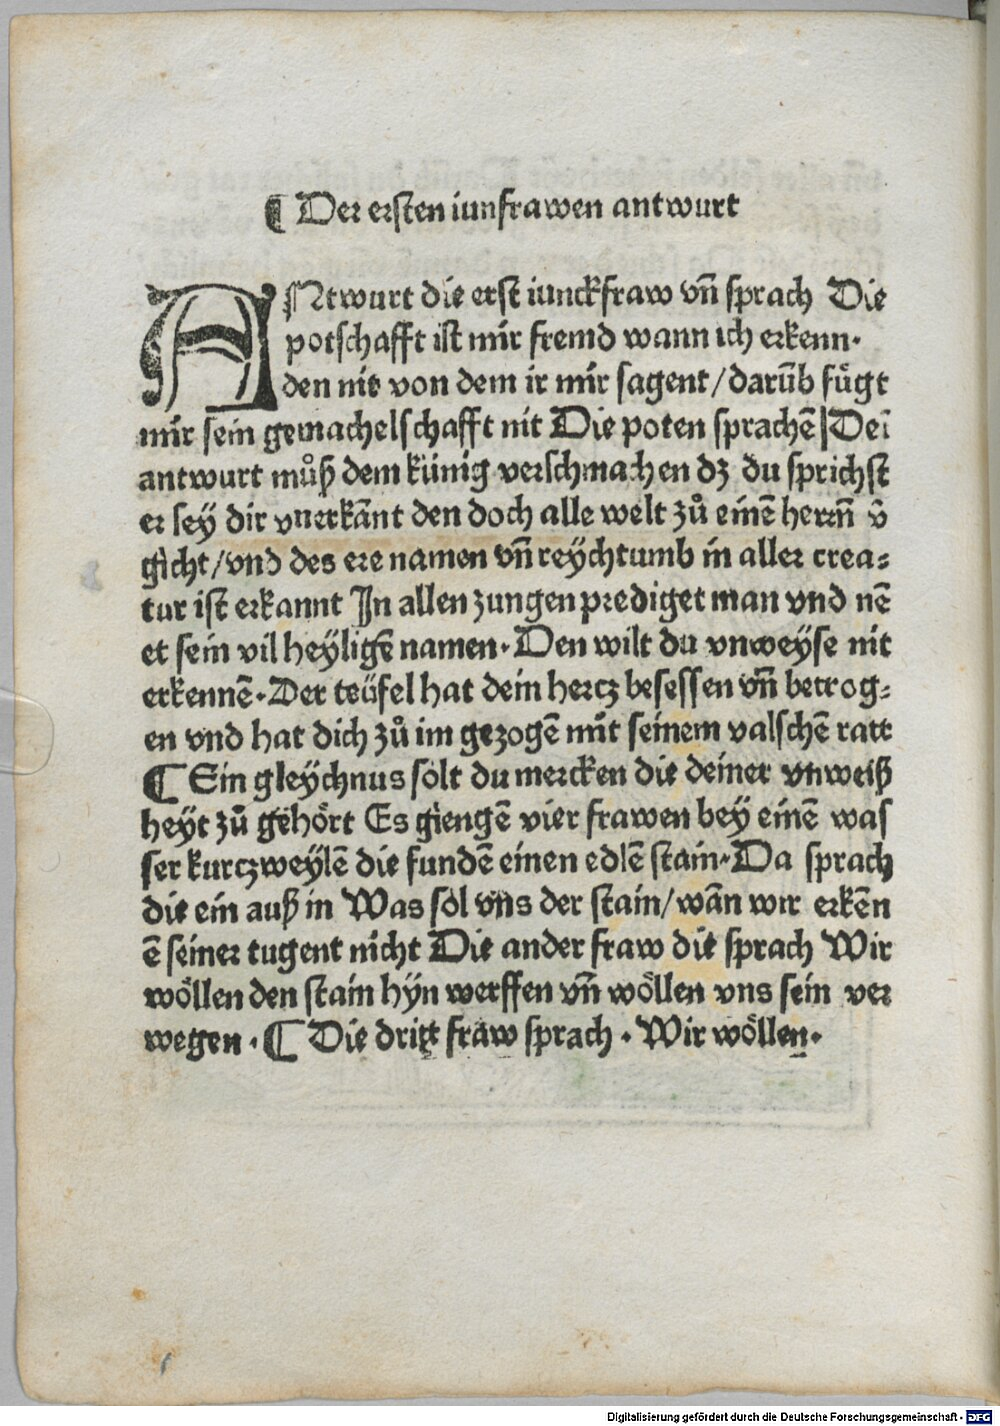 ¶ Der ersten iunfrawen antwurt
ANtwurt die erst iunckfraw vn̄ sprach Die
potschafft ist mir fremd wann ich erkenn·
den nit von dem ir mir sagent/darūb fu̍gt
mir sein gemachelschafft nit Die poten sprachē|Deī
antwurt můß dem künig verschmachen dz du sprichst
er sey dir vnerkānt den doch alle welt zů einē herrn̄ v̄
gicht/vnd des ere namen vn̄ reychtumb in aller crea⸗
tur ist erkannt In allen zungen prediget man vnd nē
et sein vil heyligē namen· Den wilt du vnweyse nit
erkennē· Der teüfel hat dein hertz besessen vn̄ betrog⸗
en vnd hat dich zů im gezogē mit seinem valschē ratt
¶ Ein gleychnus solt du mercken die deiner vnweiß
heyt zů gehört Es giengē vier frawen bey einē was
ser kurczweylē die fundē einen edlē stain· Da sprach
die ein auß in Was sol vns der stain/wān wir erkēn
ē seiner tugent nicht Die ander fraw die sprach Wir
wöllen den stain hyn werffen vn̄ wöllen vns sein ver
wegen · ¶ Die dritt fraw sprach · Wir wöllen·
Digitalisierung gefördert durch die Deutsche Forschungsgemeinschaft - DFG